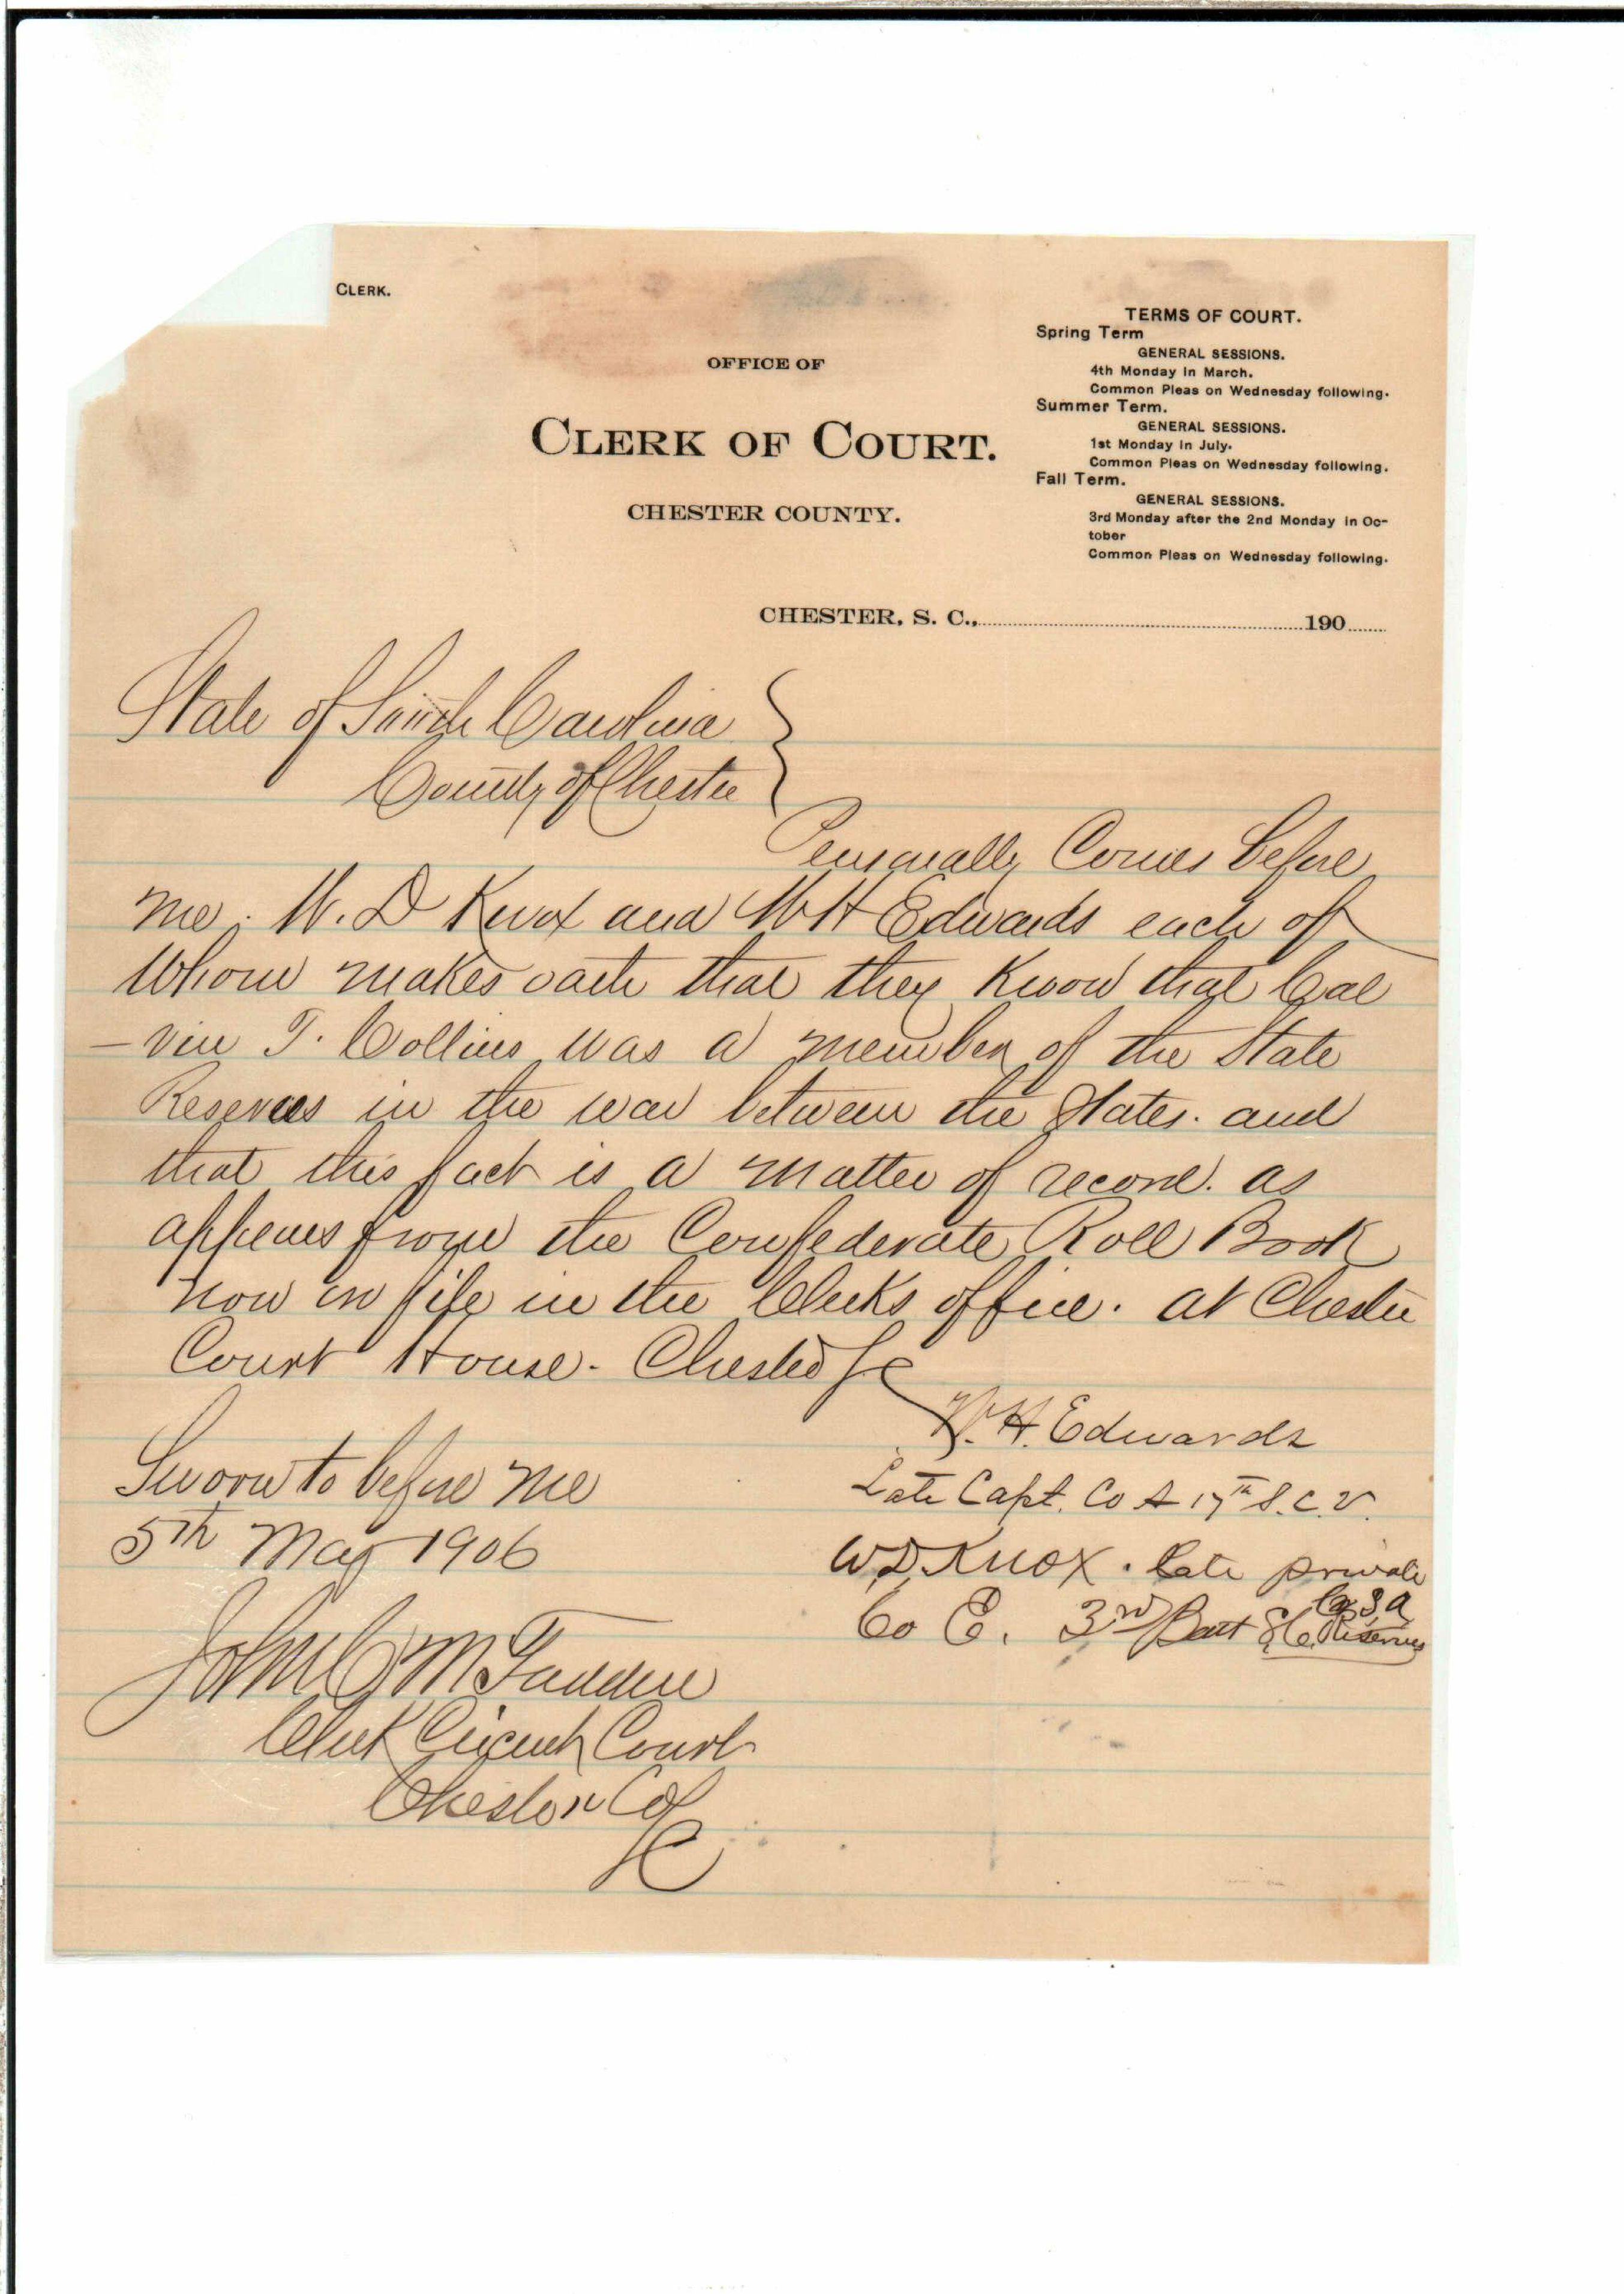 CLERK.
OFFICE OF
CLERK OF COURT.
CHESTER COUNTY.
TERMS OF COURT.
Spring Term
GENERAL SESSIONS.
4th Monday in March.
Common Pleas on Wednesday following.
Summer Term.
GENERAL SESSIONS.
1st Monday in July.
Common Pleas on Wednesday following.
Fall Term.
GENERAL SESSIONS.
3rd Monday after the 2nd Monday in Oc-
tober
Common Pleas on Wednesday following.
CHESTER, S. C., 190
State of South Carolina
County of Chester
Personally Comes before
me. W. D Knox and W H Edwards each of
whom makes oath that they know that Cal
-vin T. Collins was a member of the State
Reserves in the war between the States. and
that this fact is a matter of record. as
appears from the Confederate Roll Book
now on file in the Clerks office. at Chester
Court House. Chester S C
W. H. Edwards
Late Capt. Co A 17th S. C. V.
Sworn to before me
5th May 1906
W D Knox. late private
Co E. 3rd Batt S C Reserves
John C McFadden
Clerk Circuit Court
Chester Co
S C